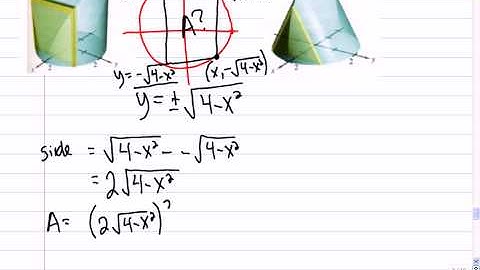 A?
y=-√4-x² (x, -√4-x²)
y = ± √4-x²
side = √4-x² - -√4-x²
= 2√4-x²
A = (2√4-x²)²